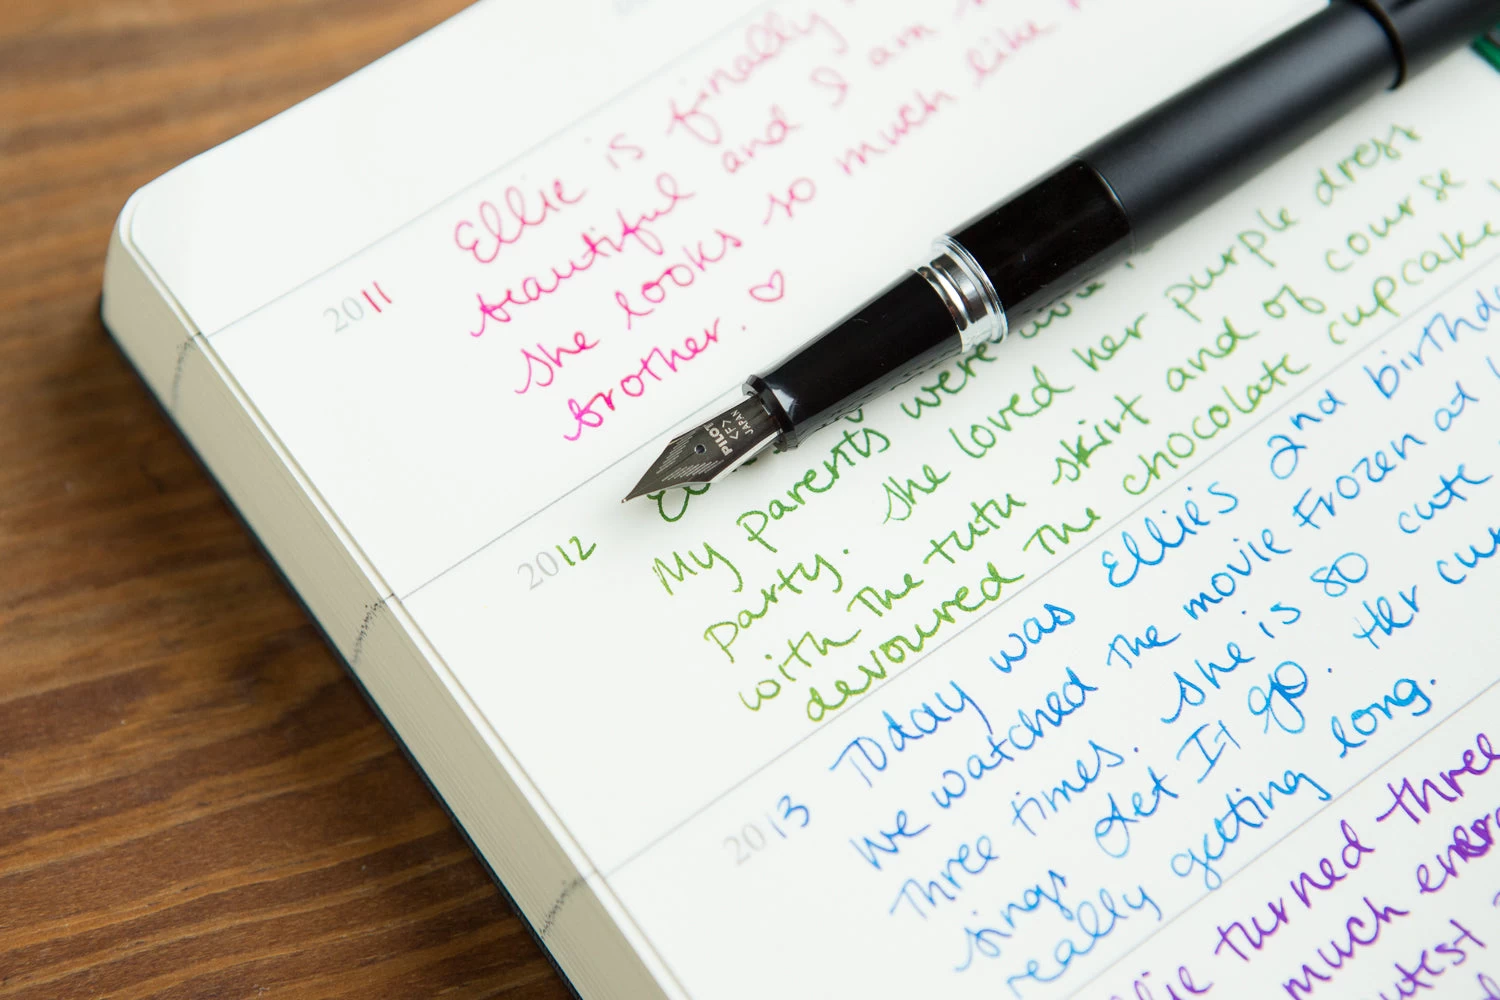 Ellie is finally
beautiful and I am
she looks so much like
2011
brother. ♡
My parents were
party. She loved her purple dress
2012
with the tutu skirt and of course
devoured the chocolate cupcake
Today was Ellie's 2nd birthday
We watched the movie Frozen at
Three times. She is so cute
2013
sings Let It go. Her
really getting long.
turned three
much energy
PILOT
<F>
JAPAN